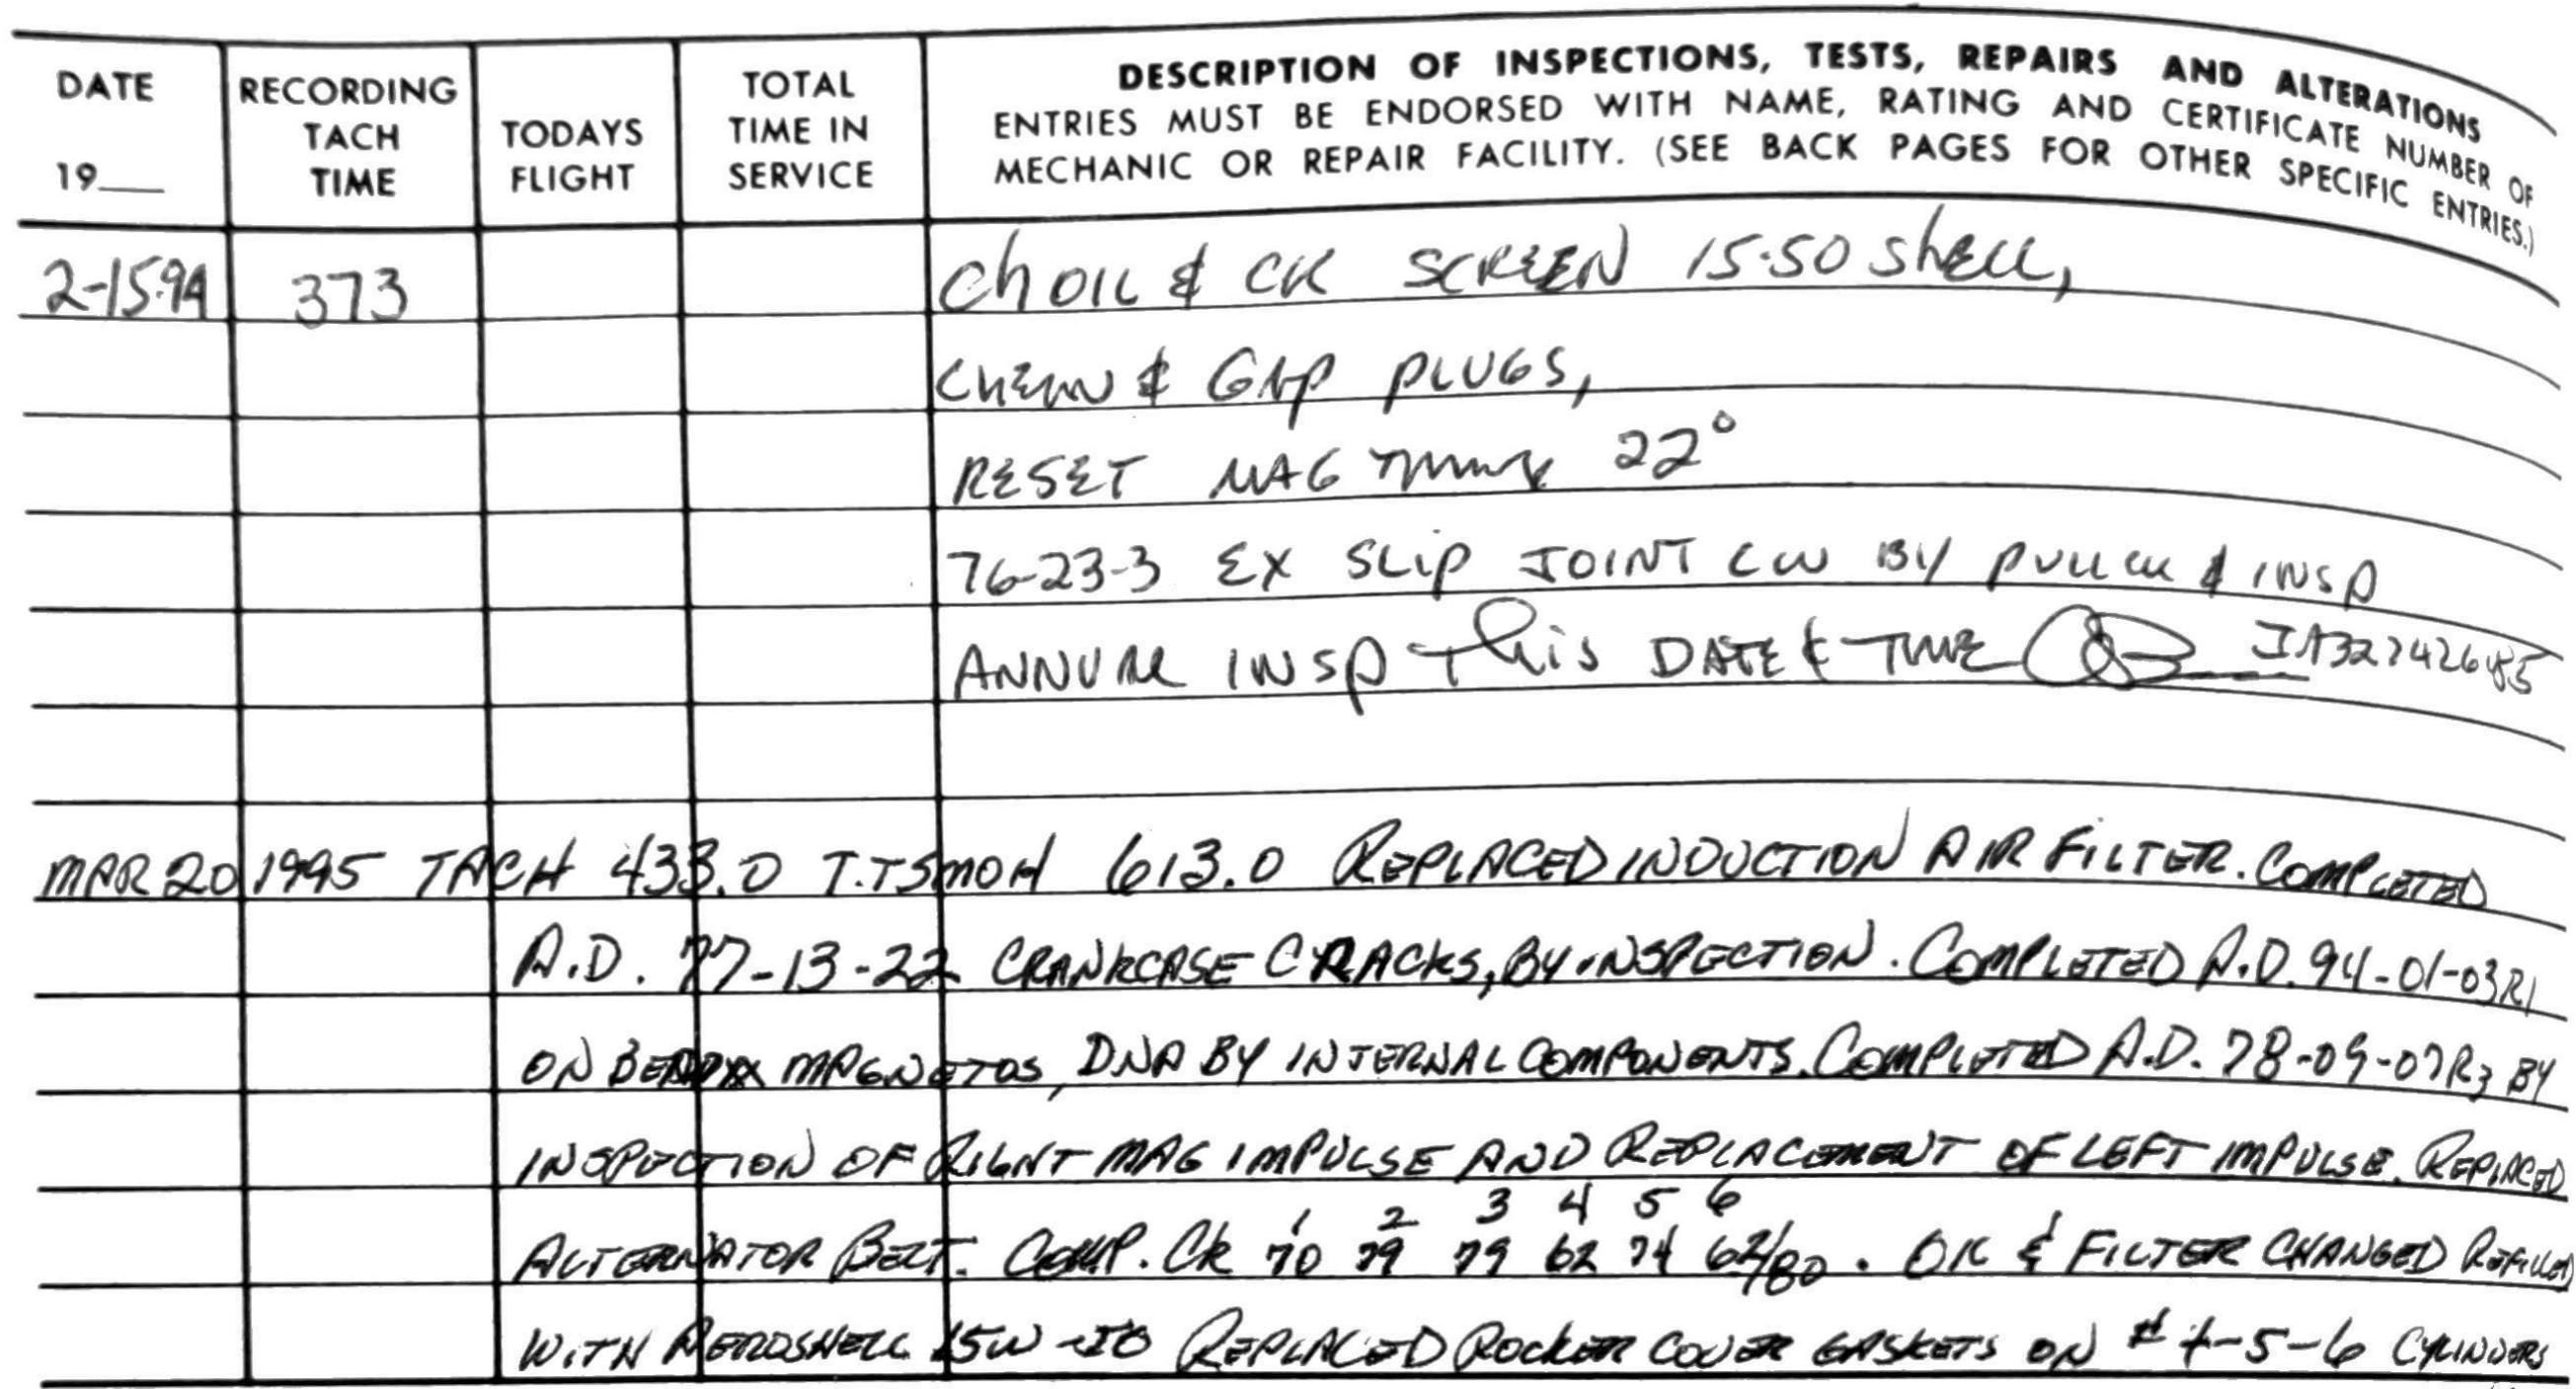 DATE 19__ RECORDING TACH TIME TODAYS FLIGHT TOTAL TIME IN SERVICE
DESCRIPTION OF INSPECTIONS, TESTS, REPAIRS AND ALTERATIONS
ENTRIES MUST BE ENDORSED WITH NAME, RATING AND CERTIFICATE NUMBER OF
MECHANIC OR REPAIR FACILITY. (SEE BACK PAGES FOR OTHER SPECIFIC ENTRIES.)
2-15-94 373 Ch OIL & CK SCREEN 15-50 Shell,
CLEAN & GAP PLUGS,
RESET MAG TIMING 22°
76-23-3 EX SLIP JOINT CW BY PULL CK & INSP
ANNUAL INSP This DATE & TIME
MAR 20 1995 TACH 433.0 T.TSMOH 613.0 REPLACED INDUCTION AIR FILTER. COMPLETED
A.D. 77-13-22 CRANKCASE CRACKS, BY INSPECTION. COMPLETED A.D. 94-01-03R1
ON BENDIX MAGNETOS, DNA BY INTERNAL COMPONENTS. COMPLETED A.D. 78-09-07R3 BY
INSPECTION OF RIGHT MAG IMPULSE AND REPLACEMENT OF LEFT IMPULSE. REPLACED
1 2 3 4 5 6
ALTERNATOR BELT. COMP. CK 70 79 79 62 74 62/80. OIL & FILTER CHANGED REFILLED
WITH AEROSHELL 15W-50 REPLACED ROCKER COVER GASKETS ON # 4-5-6 CYLINDERS